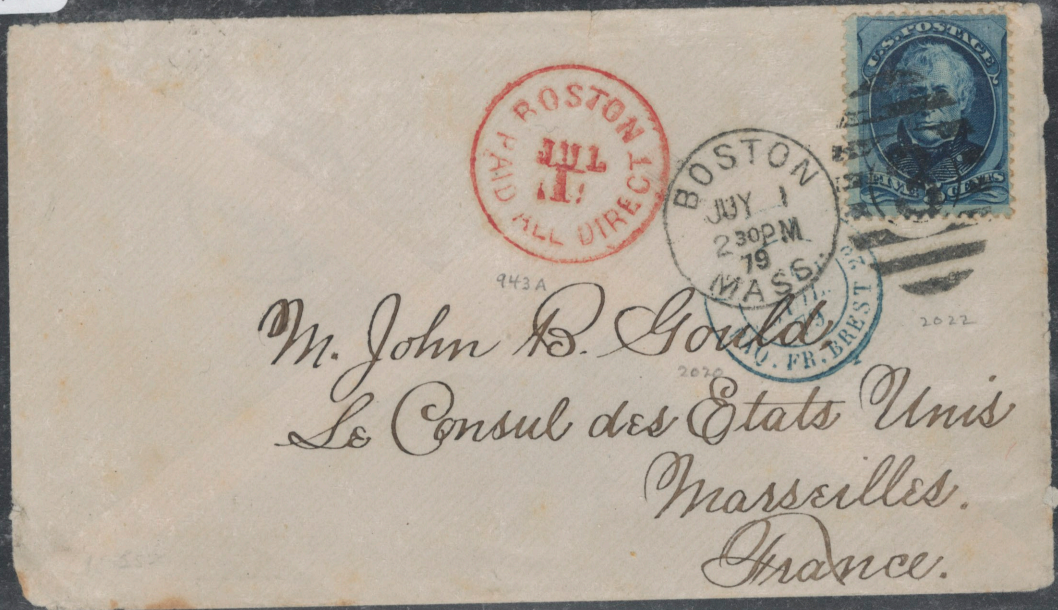 U.S. POSTAGE.
FIVE CENTS
BOSTON
PAID ALL DIRECT
JUL
1
BOSTON
JUY 1
2 30PM
79
MASS.
FR. BREST. 2º
943A
2022
2020
M. John B. Gould,
Le Consul des Etats Unis
Marseilles.
France.